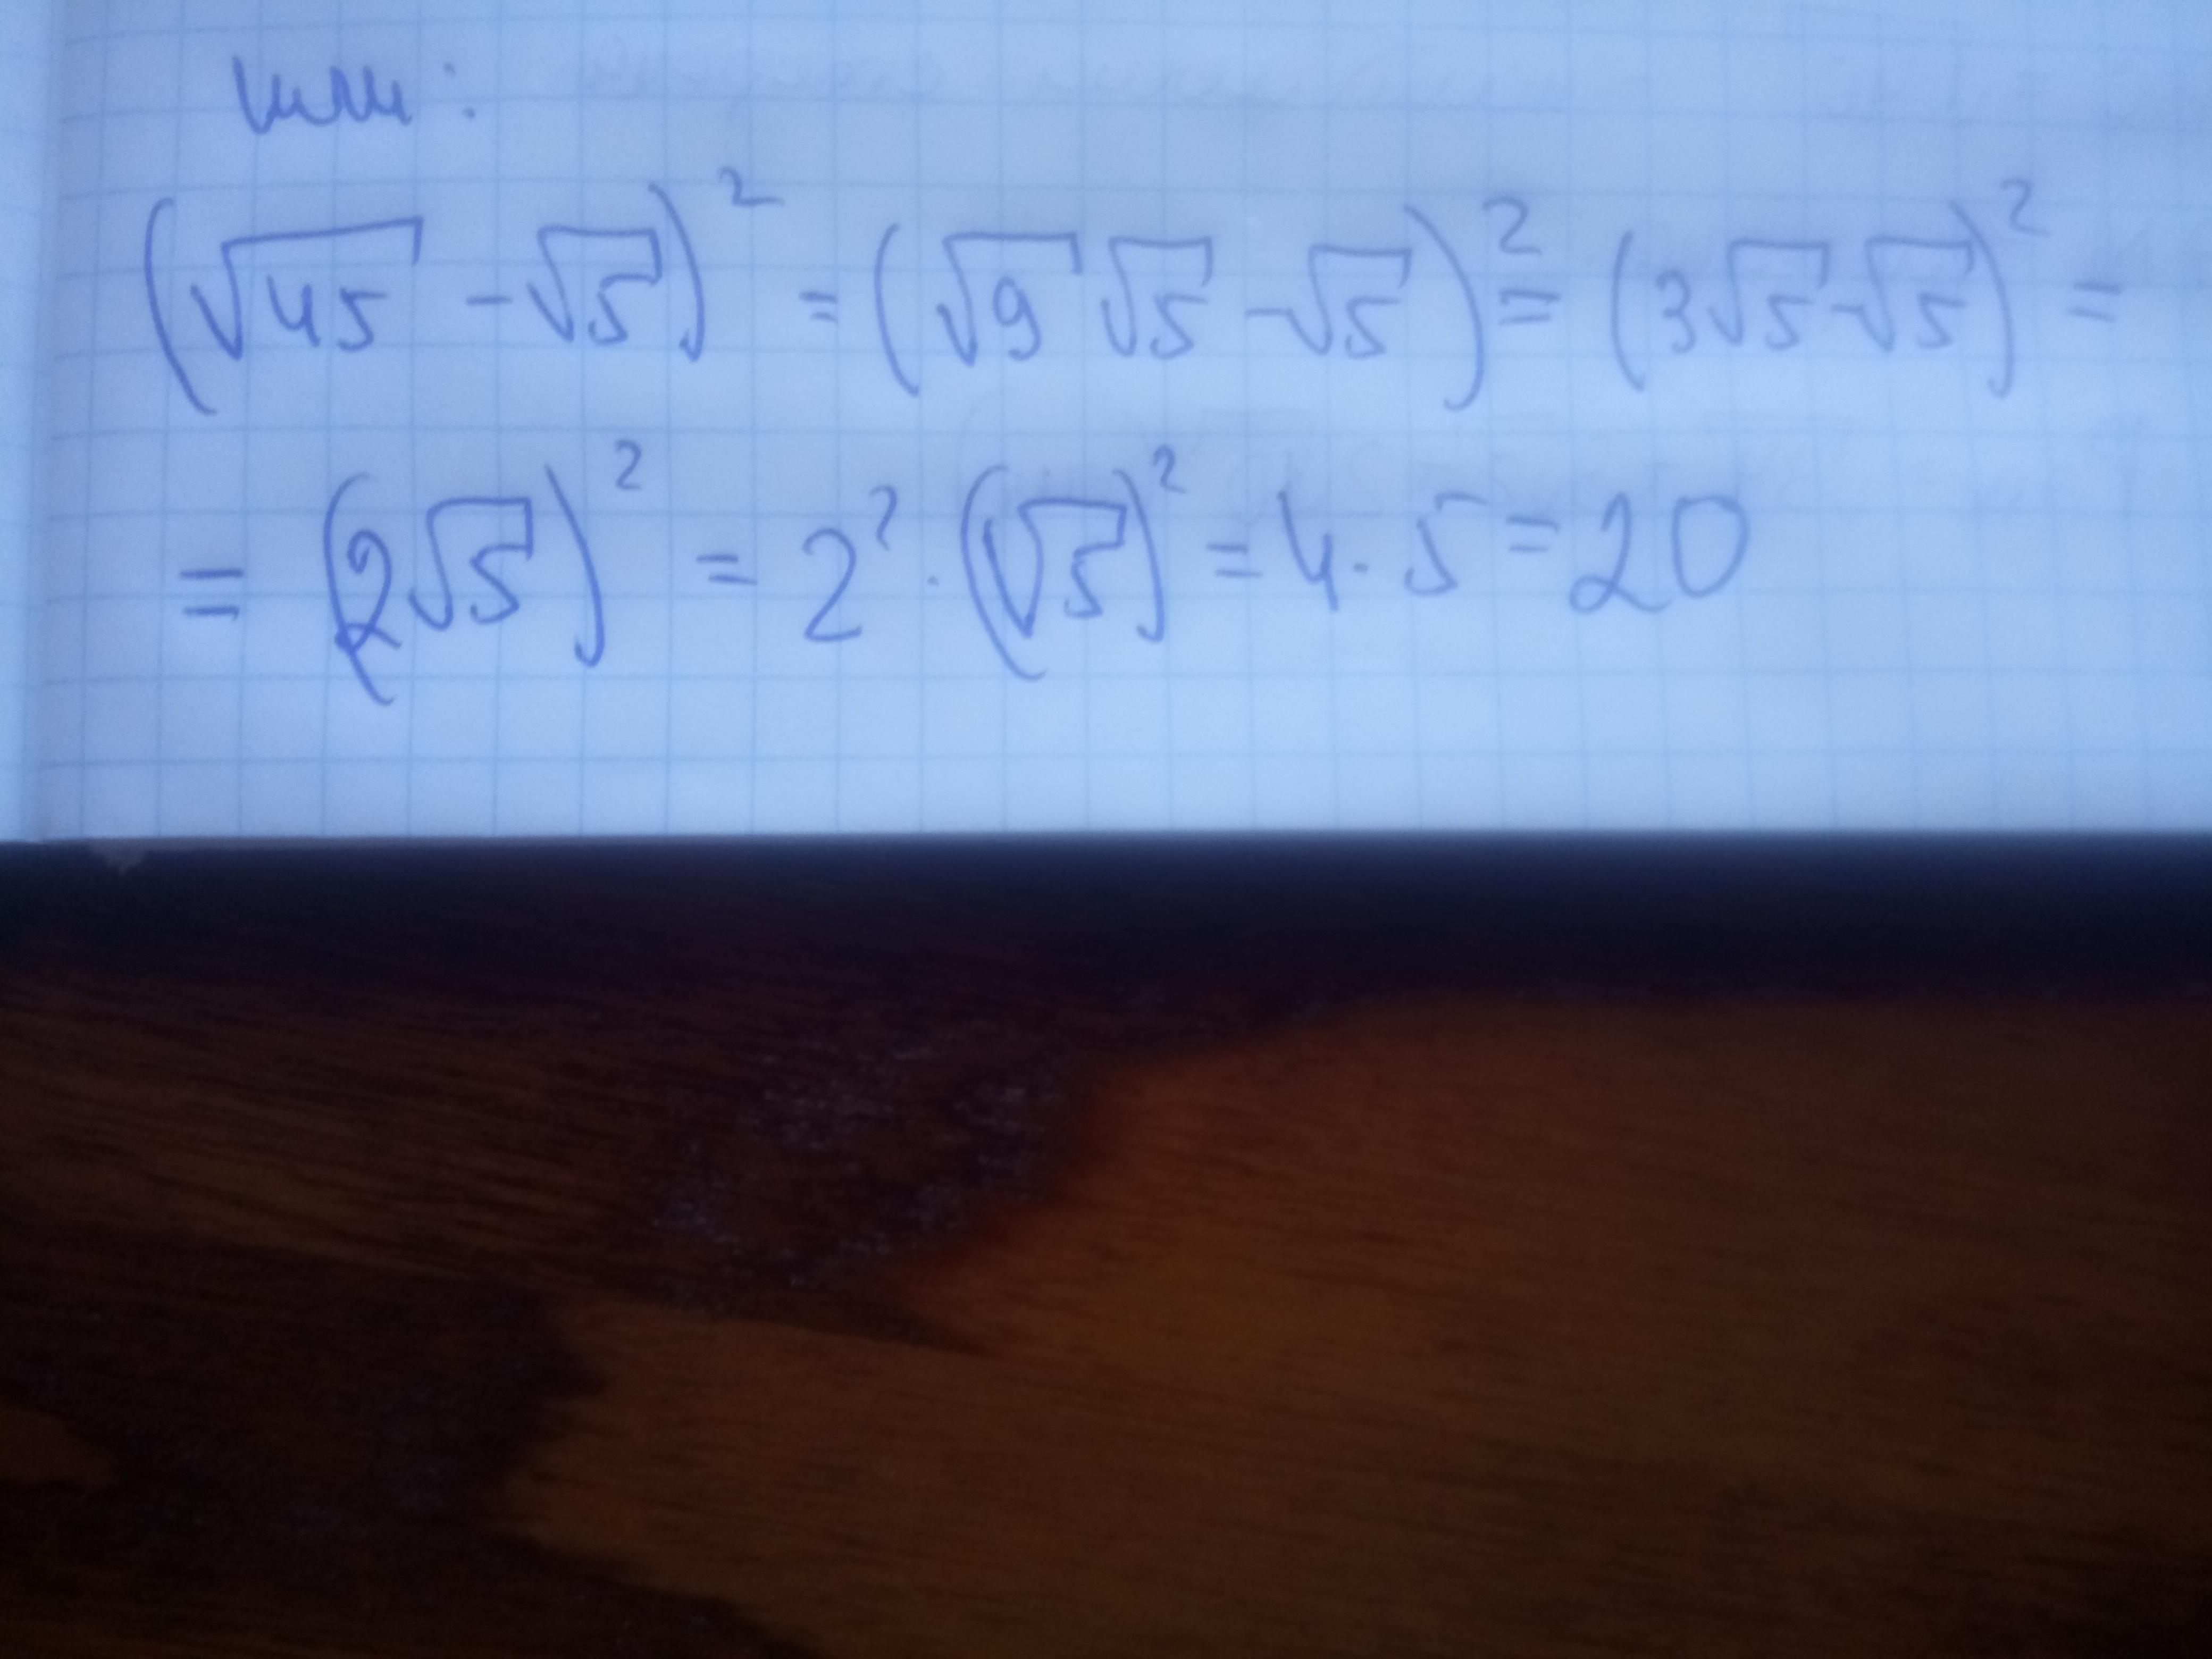 или:
(√45 - √5)² = (√9 √5 - √5)² = (3√5 - √5)² =
= (2√5)² = 2² · (√5)² = 4 · 5 = 20